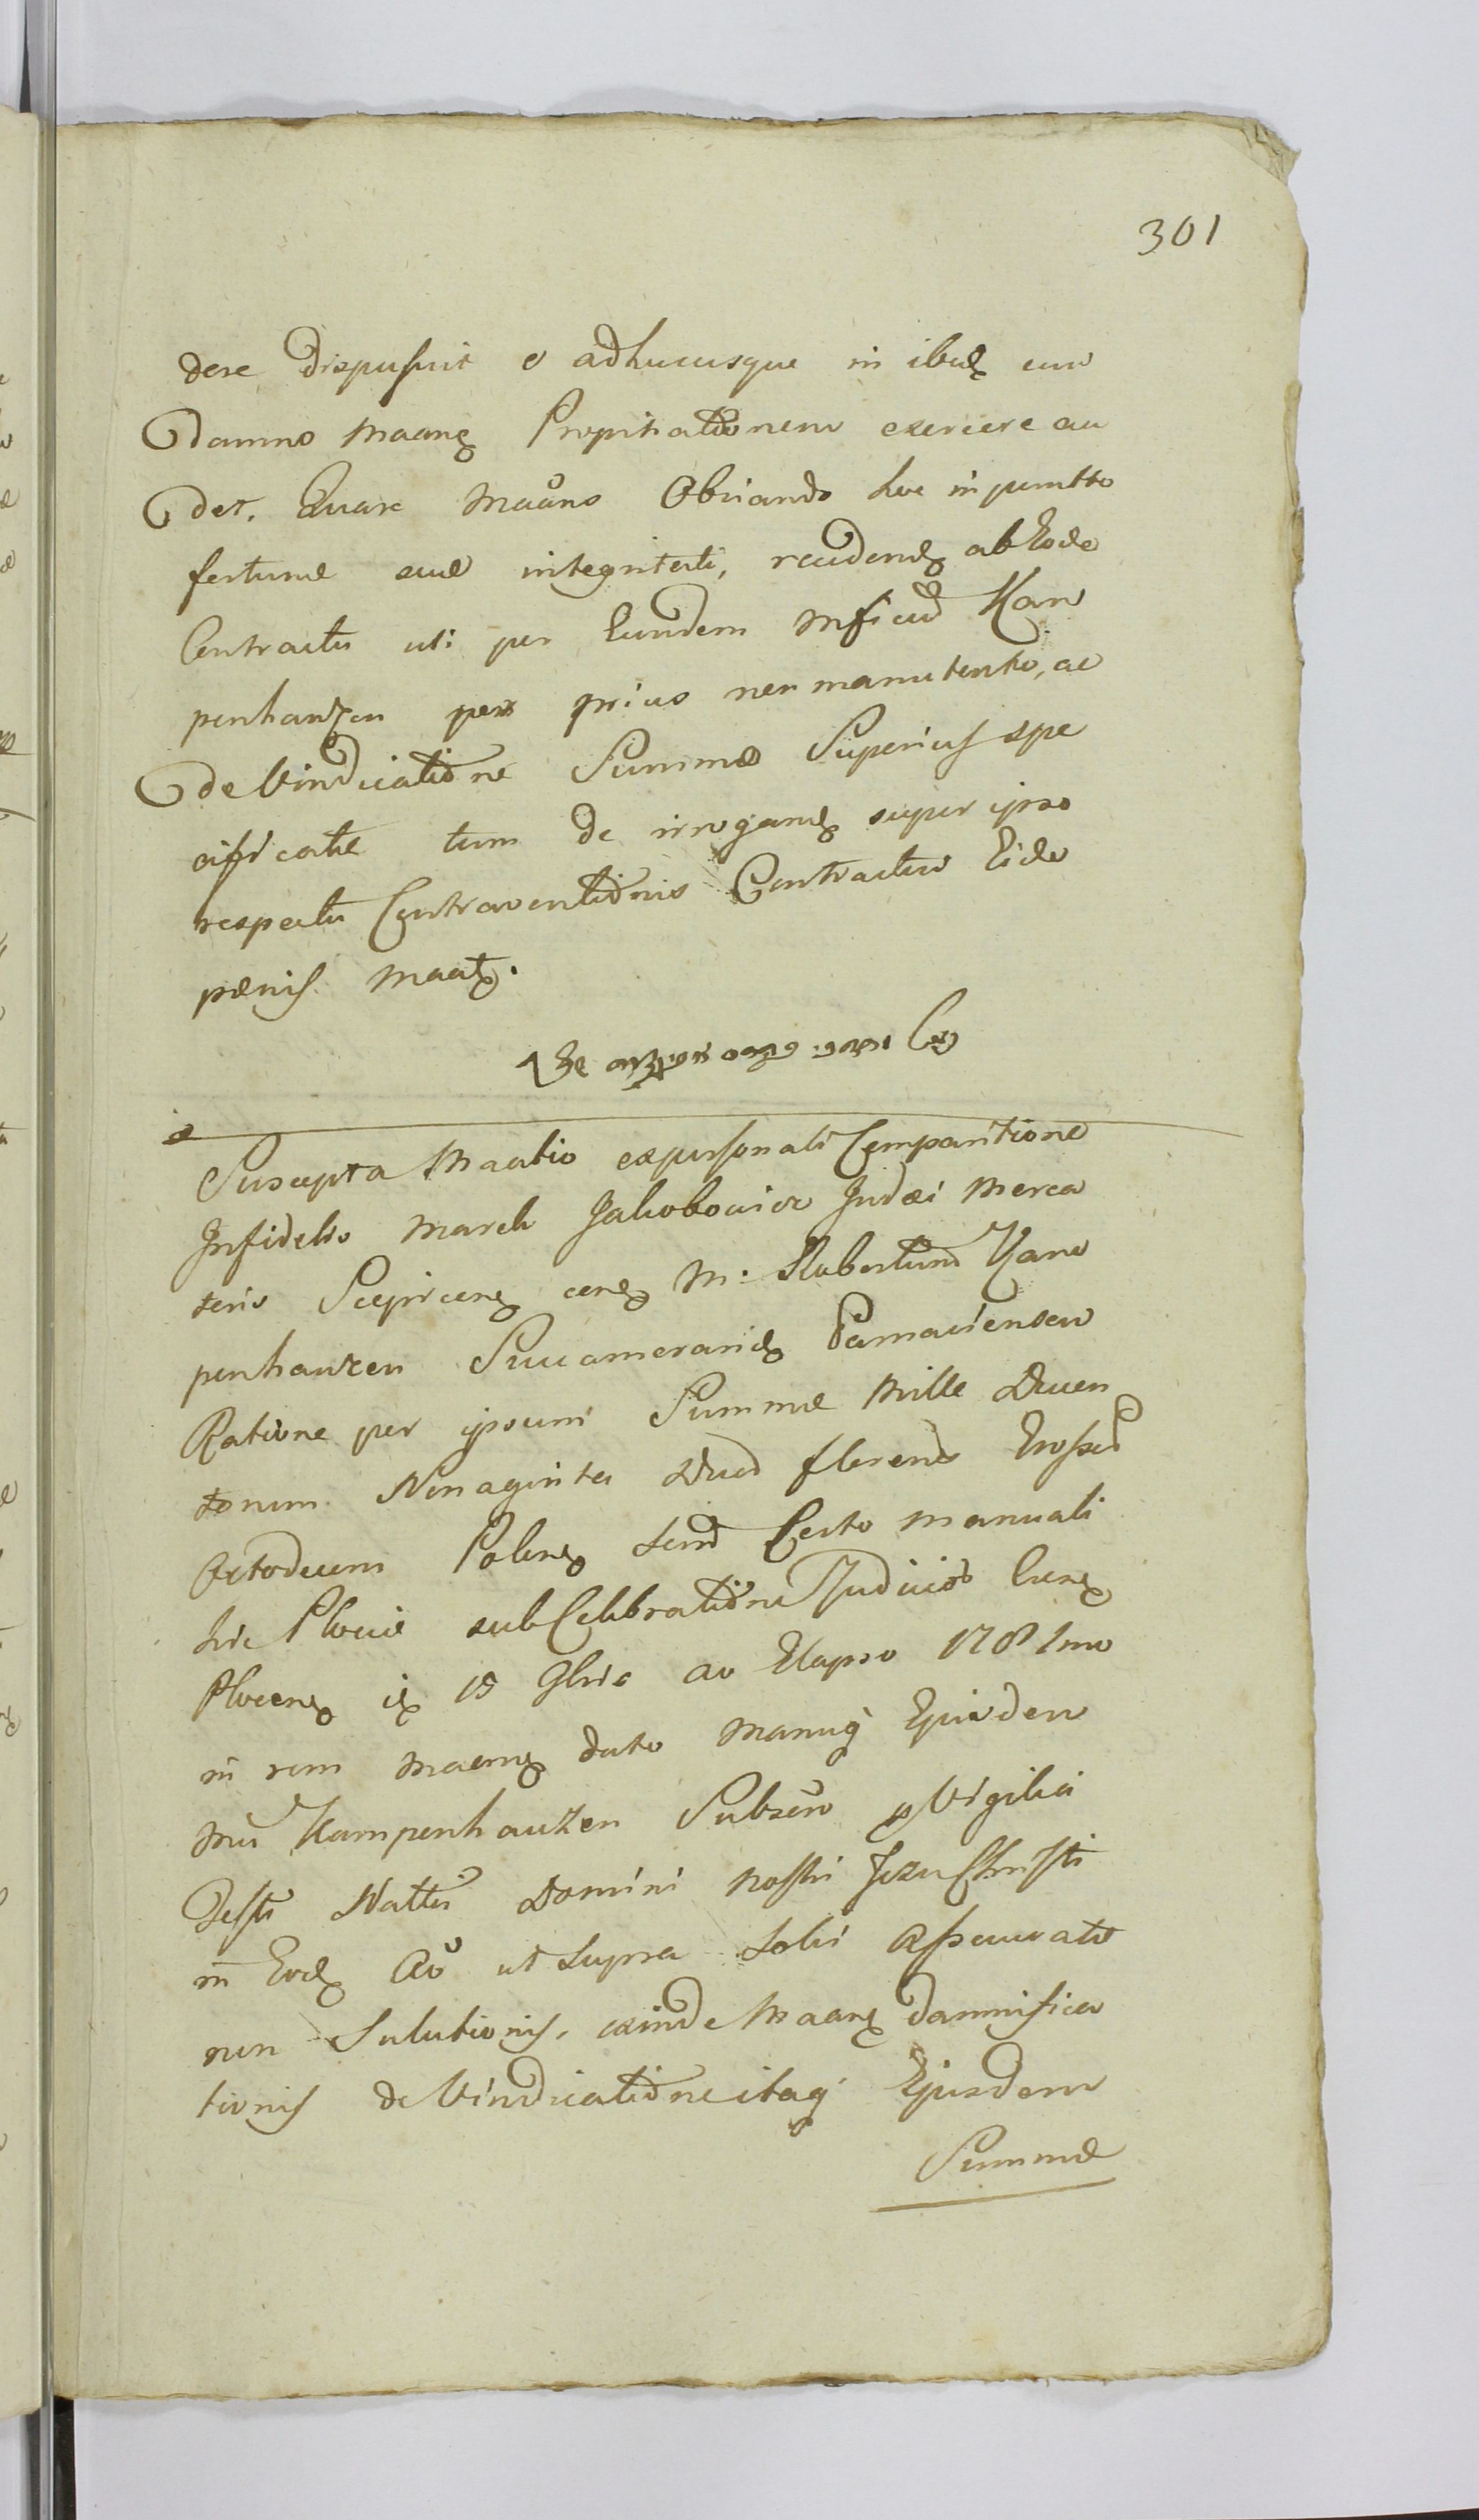 301
dere Disposuit e adhucusque in ibidẽ cum
damno Maanẽ Propinationem exercere au
det. Quare Maans Obviando hoc in puncto
fortunæ suæ integritati, recedendẽ ab Eode
Contractu uti per Eundem Mficud Kam
penhauzen per prius non manutento, ac
de Vindicatione Summæ Superius spe
cificatæ tum de irrogandẽ super ipso
respectu Contraventionis Contractui Eide
pænis Maatẽ.
Suscepta Maatio expersonali Comparitione
Infidelis March Jakobowicz Judæi Merca
toris Scepscenẽ cenẽ M. Robertum Kam
penhauzen Succamerariẽ Parnaviensem
Ratione per ipsum Summæ Mille Ducen
torum Nonaginta Duo florenõ Grossed
Octodecem Polonẽ Seud Certo Manuali
hic Plociæ sub Celebratione Judicior Curẽ
Plocenẽ iẽ 15 9bris ao Elapso 1781mo
in rem Maemẽ dato Manuq Ejusdem
Mũ Kampenhauzen Subscro p Vigilia
Festi Nattis Domini Nostri Jezu Christi
in Eodẽ Ao ut Supra Solvi Assecuratæ
non Solutionis, exinde Maanẽ damnifica
tionis de Vindicatione itaq Ejusdem
Summæ